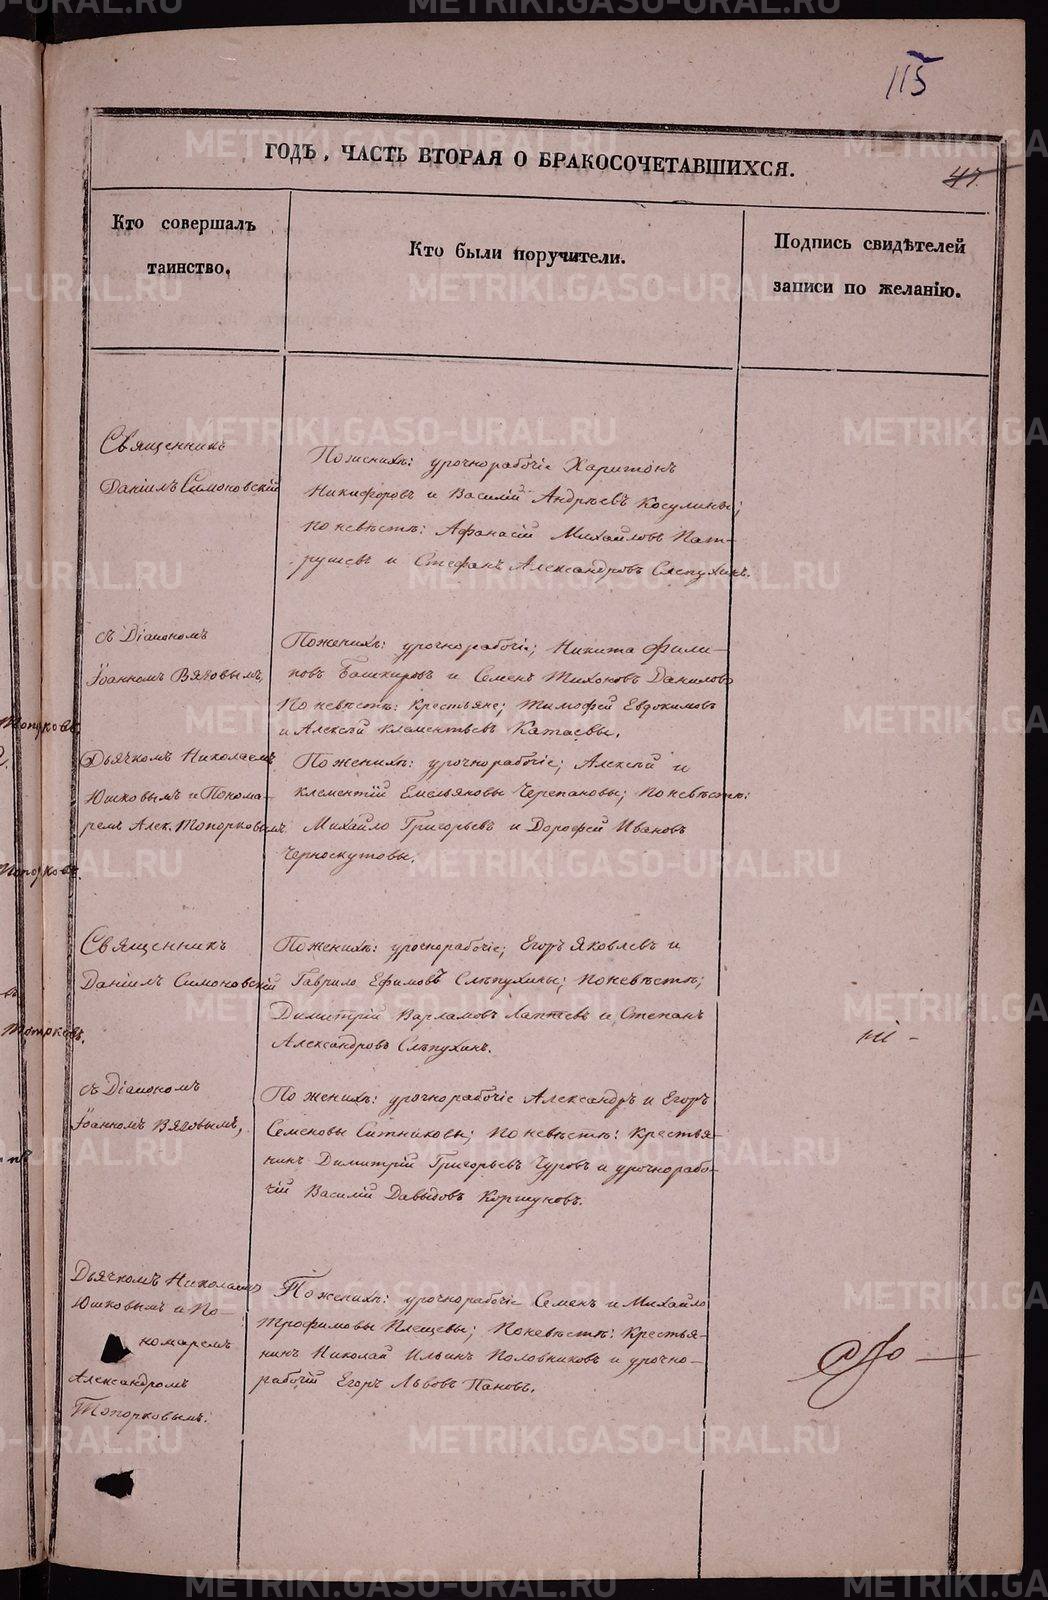 115
ГОДЪ, ЧАСТЬ ВТОРАЯ О БРАКОСОЧЕТАВШИХСЯ.
47
Кто совершалъ
таинство.
Кто были поручители.
Подпись свидѣтелей
записи по желанію.
Священникъ
Даніилъ Симоновскій
По женихѣ: урочнорабочіе Харитонъ
Никифоровъ и Василій Андрѣевъ Косулины;
по невѣстѣ: Афанасій Михайловъ Пат-
рушевъ и Стефанъ Александровъ Слепухинъ.
съ Діакономъ
Іоанномъ Вяговымъ,
По женихѣ: урочнорабочіе; Никита Фили-
повъ Башкировъ и Семенъ Тихоновъ Даниловъ
По невѣстѣ: Крестьяне; Тимофей Евдокимовъ
и Алексѣй Клементьевъ Катаевы.
Дьячкомъ Николаемъ
Юшковымъ и Понома-
ремъ Алек. Топорковымъ
По женихѣ: урочнорабочіе; Алексѣй и
Клементій Емельяновы Черепановы; по невѣстѣ:
Михайло Григорьевъ и Дорофей Ивановъ
Черноскутовы.
Священникъ
Даніилъ Симоновскій
По женихѣ: урочнорабочіе; Егоръ Яковлевъ и
Гаврило Ефимовъ Слѣпухины; по невѣстѣ;
Димитрій Варламовъ Лаптевъ и Степанъ
Александровъ Слѣпухинъ.
съ Діакономъ
Іоанномъ Вяговымъ,
По женихѣ: урочнорабочіе Александръ и Егоръ
Семеновы Ситниковы; по невѣстѣ: Крестья-
нинъ Димитрій Григорьевъ Чуровъ и урочнорабо-
чій Василій Давыдовъ Коршуновъ.
Дьячкомъ Николаемъ
Юшковымъ и По-
номаремъ
Александромъ
Топорковымъ.
По женихѣ: урочнорабочіе Семенъ и Михайло
Трофимовы Плещевы; по невѣстѣ: Крестья-
нинъ Николай Ильинъ Половниковъ и урочно-
рабочій Егоръ Львовъ Пановъ.